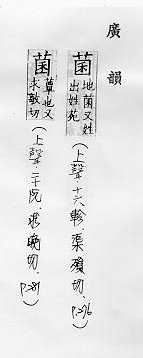 廣韻
菌 地菌又姓出姓苑 (上聲十六軫.渠殞切.P.276)
菌 蕈也又求敏切 (上聲二十阮.求晚切.P.281)